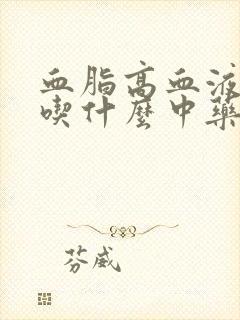 血脂高血液
喫什麼中藥
芬威